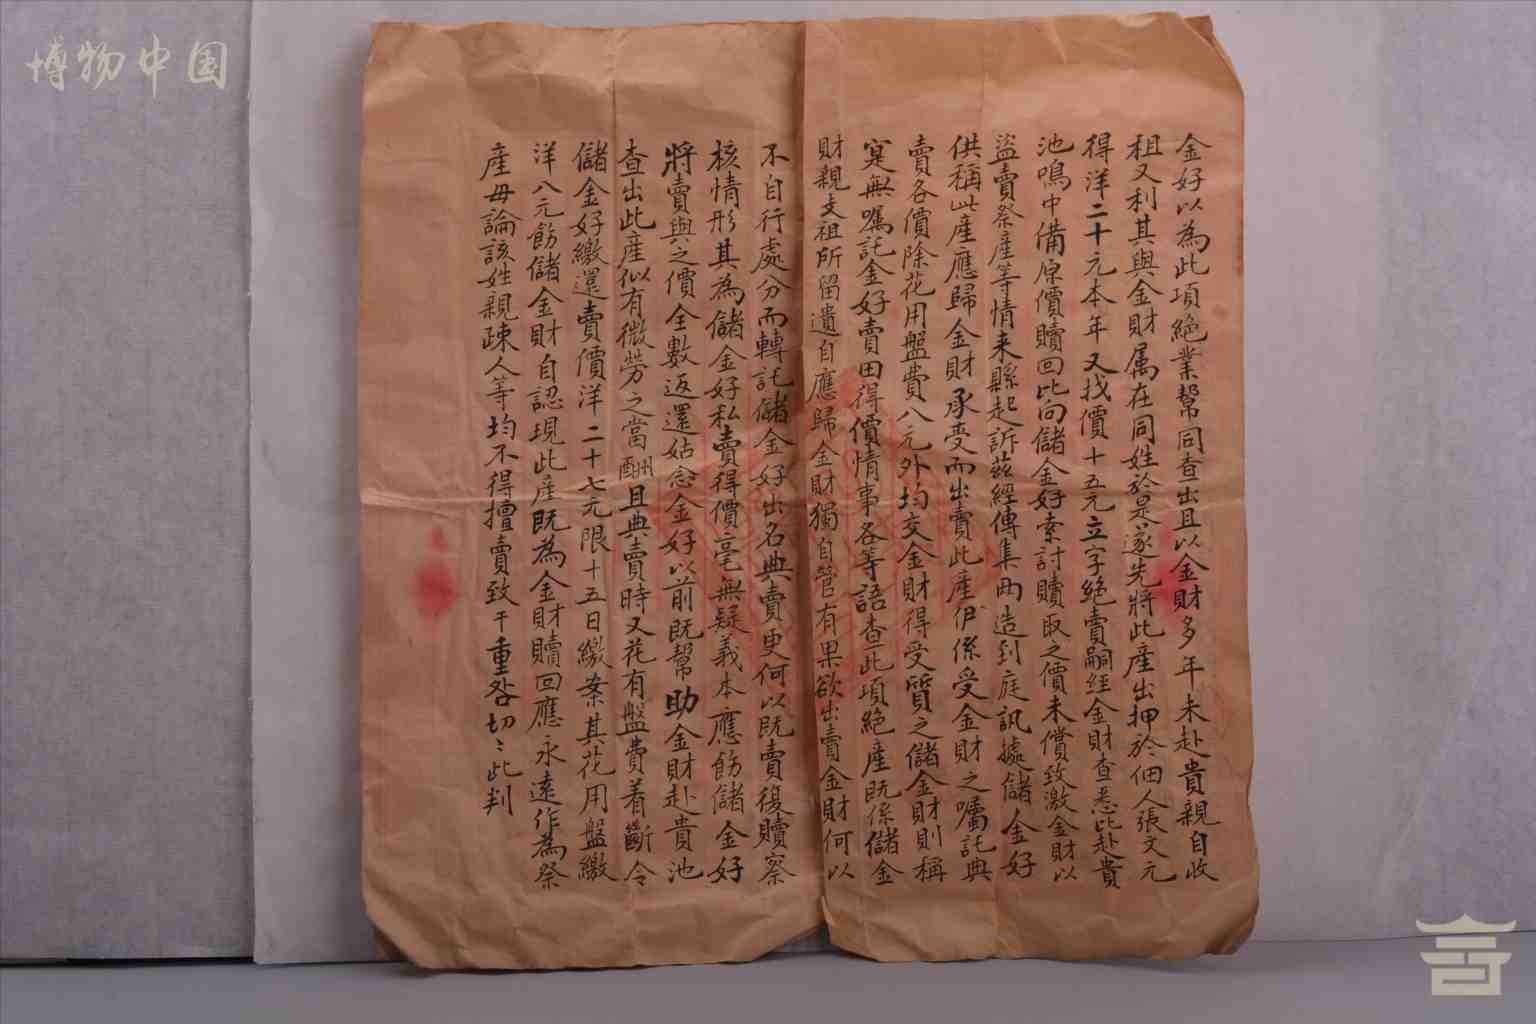 博物中国
金好以為此項絕業幫同查出且以金財多年未赴貴親自收
租又利其與金財属在同姓於是遂先將此產出押於佃人張文元
得洋二十元本年又找價十五元立字絕賣嗣經金財查悉赴貴
池鳴中備原價贖回比向儲金好索討贖取之價未償致激金財以
盜賣祭產等情来縣起訴兹經傳集兩造到庭訊據儲金好
供稱此產應歸金財承受而出賣此產伊係受金財之囑託典
賣各價除花用盤費八元外均交金財得受質之儲金財則稱
寔無囑託金好賣田得價情事各等語查此項絕產既係儲金
財親支祖所留遺自應歸金財獨自管有果欲出賣金財何以
不自行處分而轉託儲金好出名典賣更何以既賣復贖察
核情形其為儲金好私賣得價毫無疑義本應飭儲金好
將賣與之價全數返還姑念金好以前既幫助金財赴貴池
查出此產似有微勞之當酬且典賣時又花有盤費着斷令
儲金好繳還賣價洋二十七元限十五日繳案其花用盤繳
洋八元飭儲金財自認現此產既為金財贖回應永遠作為祭
產毋論該姓親疎人等均不得擅賣致干重咎切〻此判